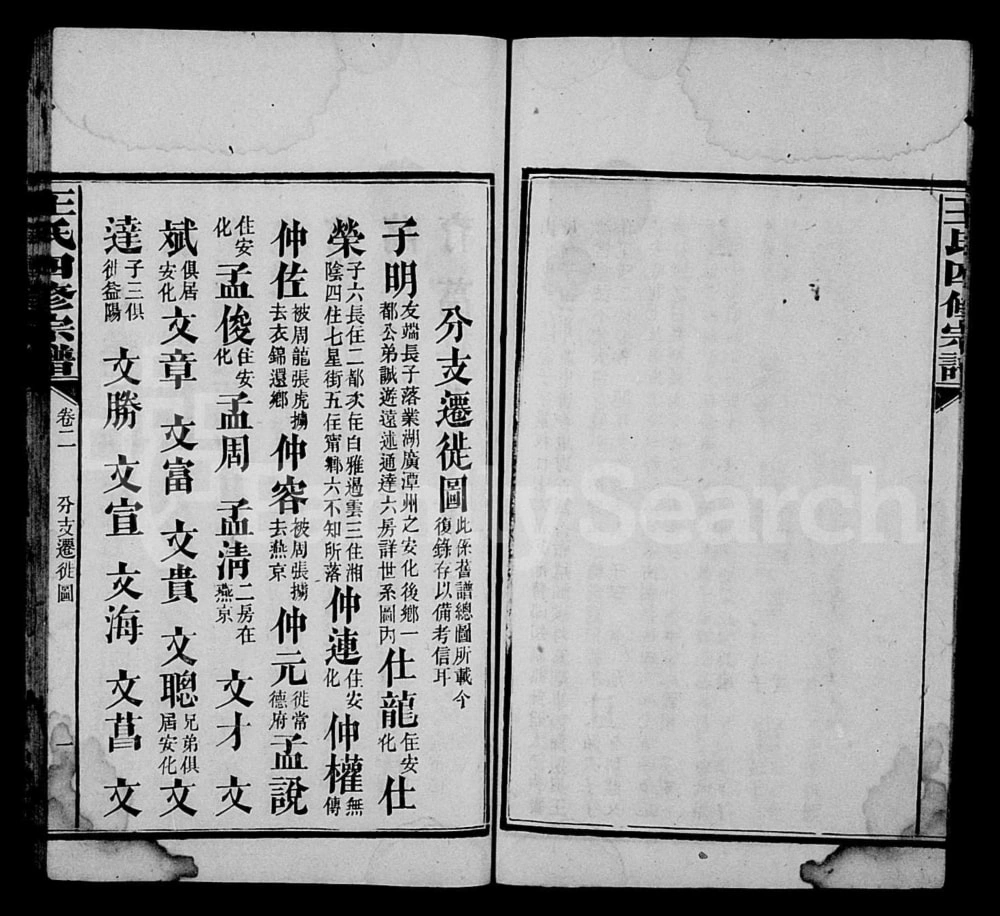 王氏四修宗譜
分支遷徙圖 此係舊譜總圖所載今復錄存以備考信耳
子明 友端長子落業湖廣潭州之安化後鄉一都公弟誠遊遠述通達六房詳世系圖內 仕龍 住安化 仕
榮 子六長住二都次住白雅過雲三住湘陰四住七星街五住甯鄉六不知所落 仲連 住安化 仲權 無傳
仲佐 被周龍張虎擄去衣錦還鄉 仲容 被周張擄去燕京 仲元 徙常德府 孟說
住安化 孟俊 住安化 孟周 孟清 二房在燕京 文才 文
斌 俱居安化 文章 文富 文貴 文聰 兄弟俱居安化 文
達 子三俱徙益陽 文勝 文宣 文海 文菖 文
王氏四修宗譜 卷二 分支遷徙圖 一
FamilySearch